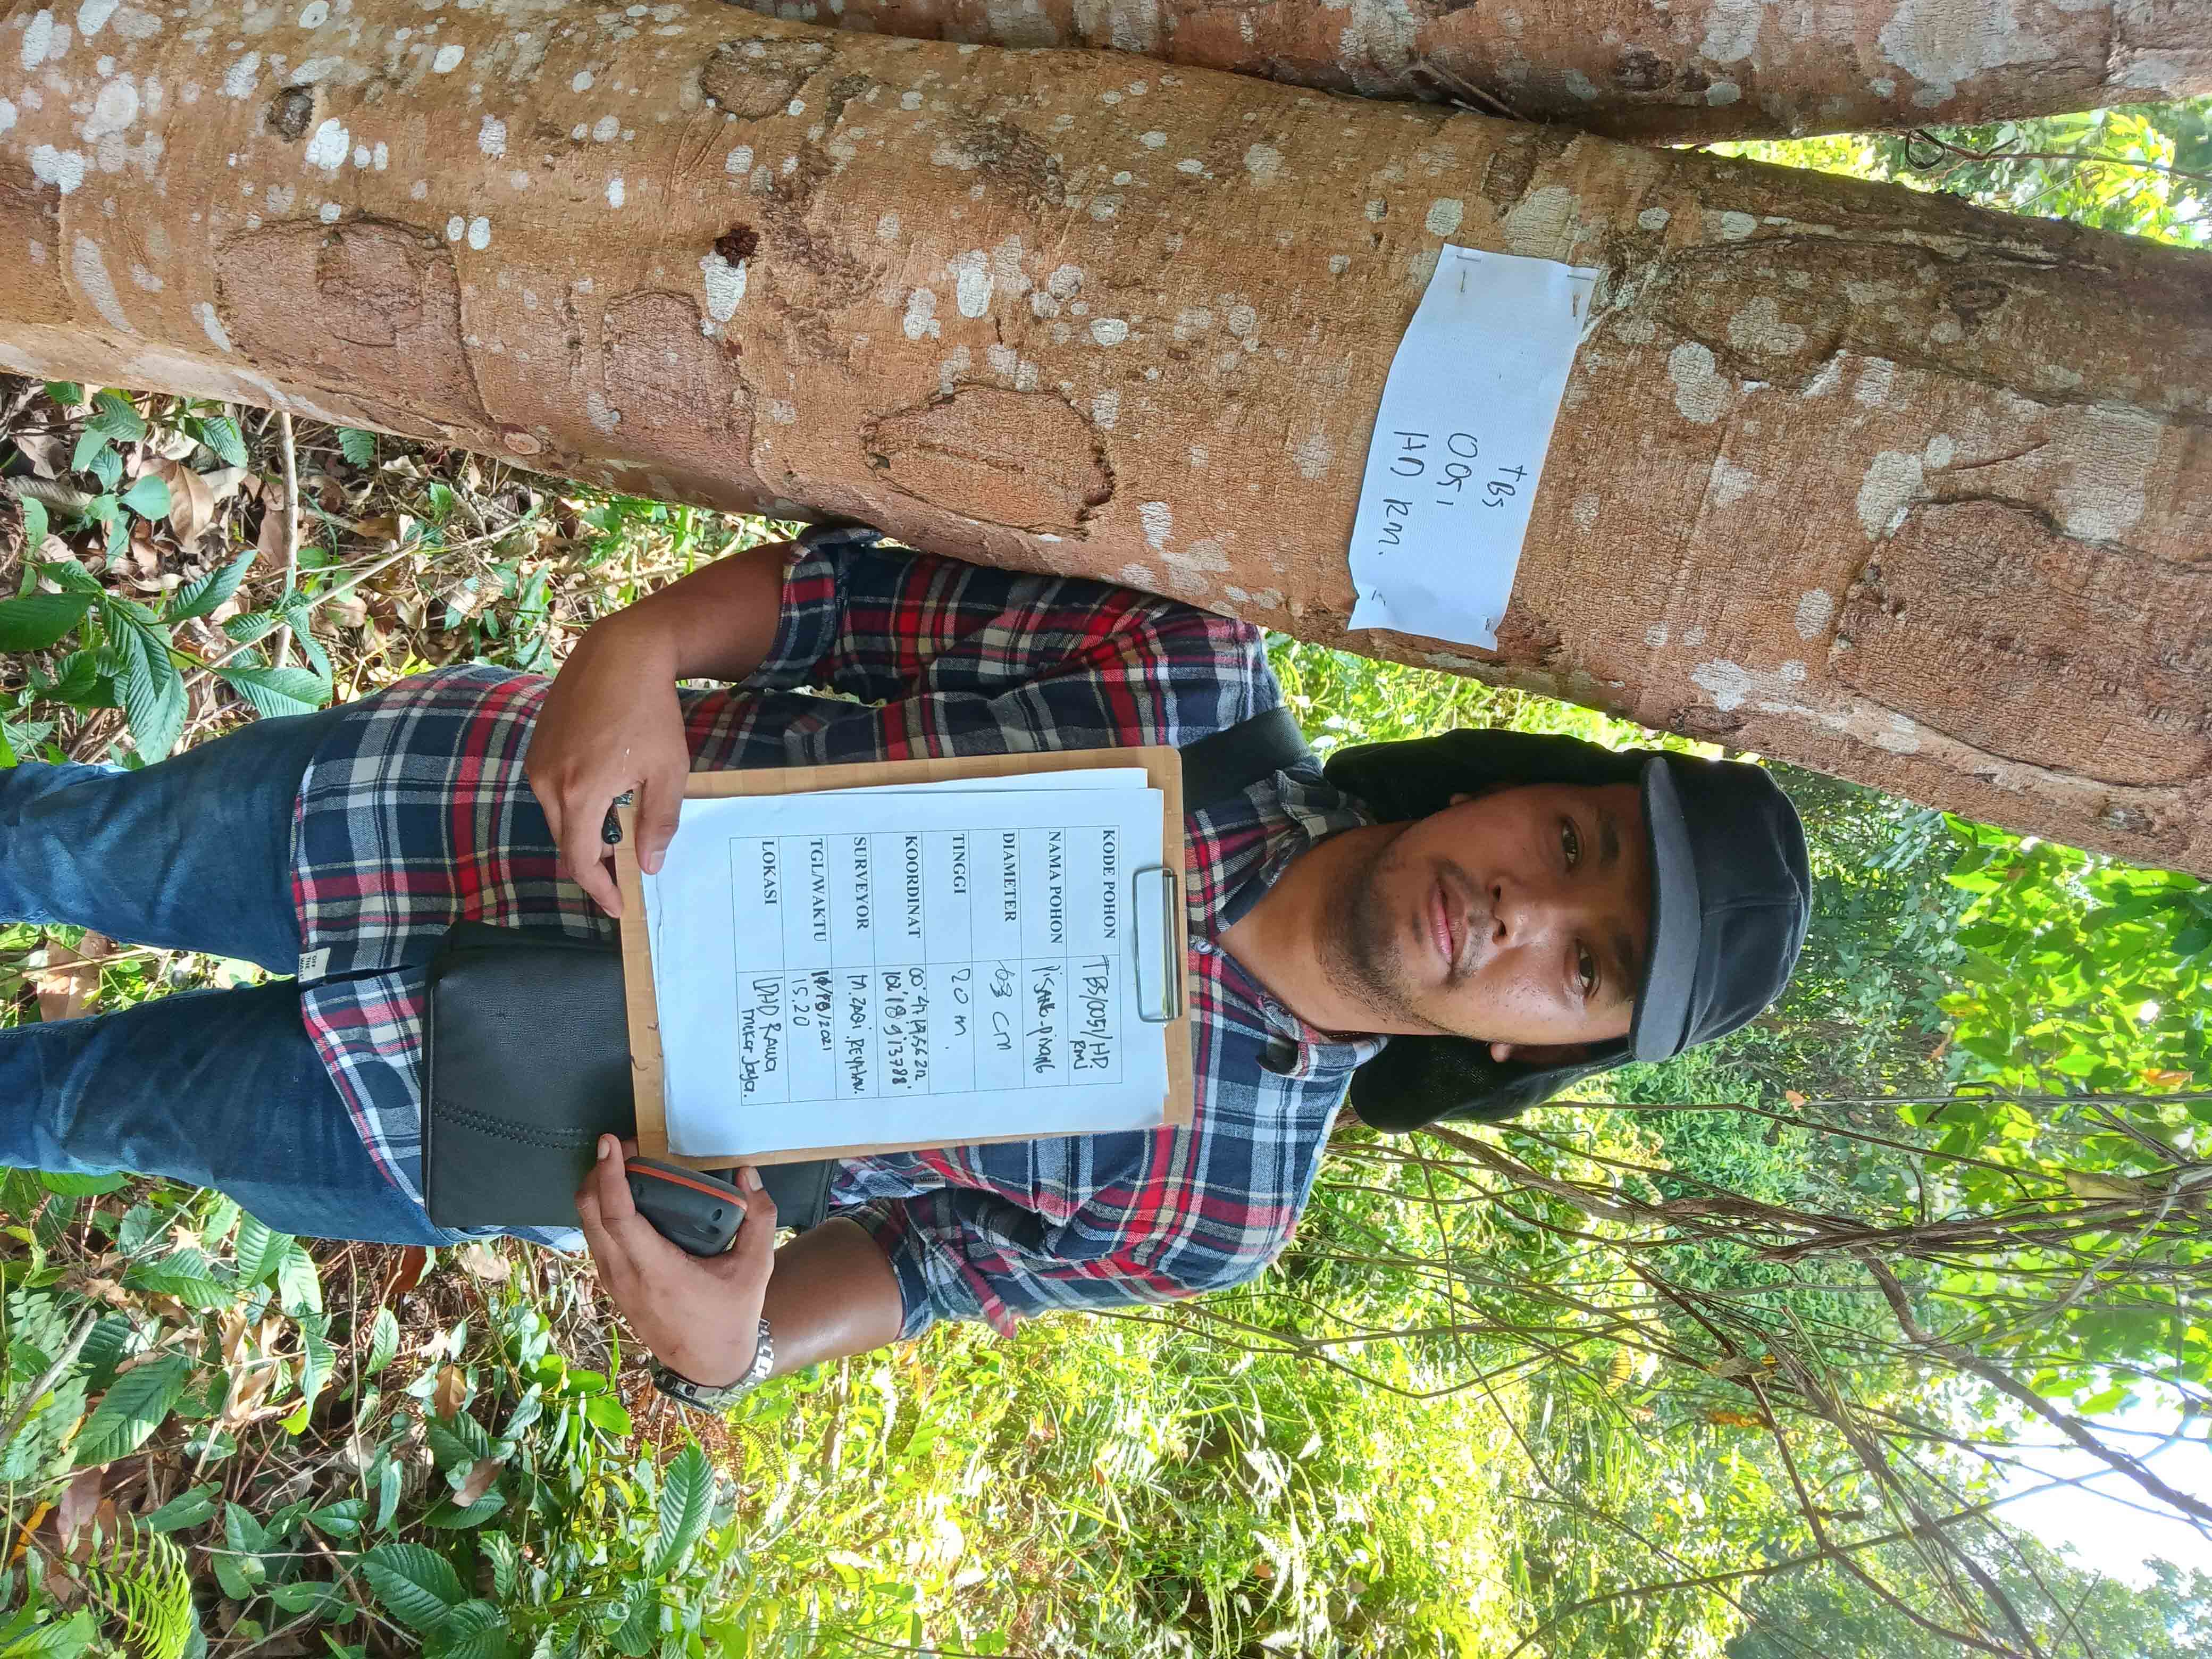 TBS
0051
HD RM.
KODE POHON TBS/0051/HD.
RMJ
NAMA POHON PISANG-PISANG
DIAMETER 63 cm
TINGGI 20 m.
KOORDINAT
SURVEYOR M. ZAQI .REYHAN.
TGL/WAKTU /2021
15.20
LOKASI LDHD RAWA
mekar Jaya.
"OFF
THE
WALL"